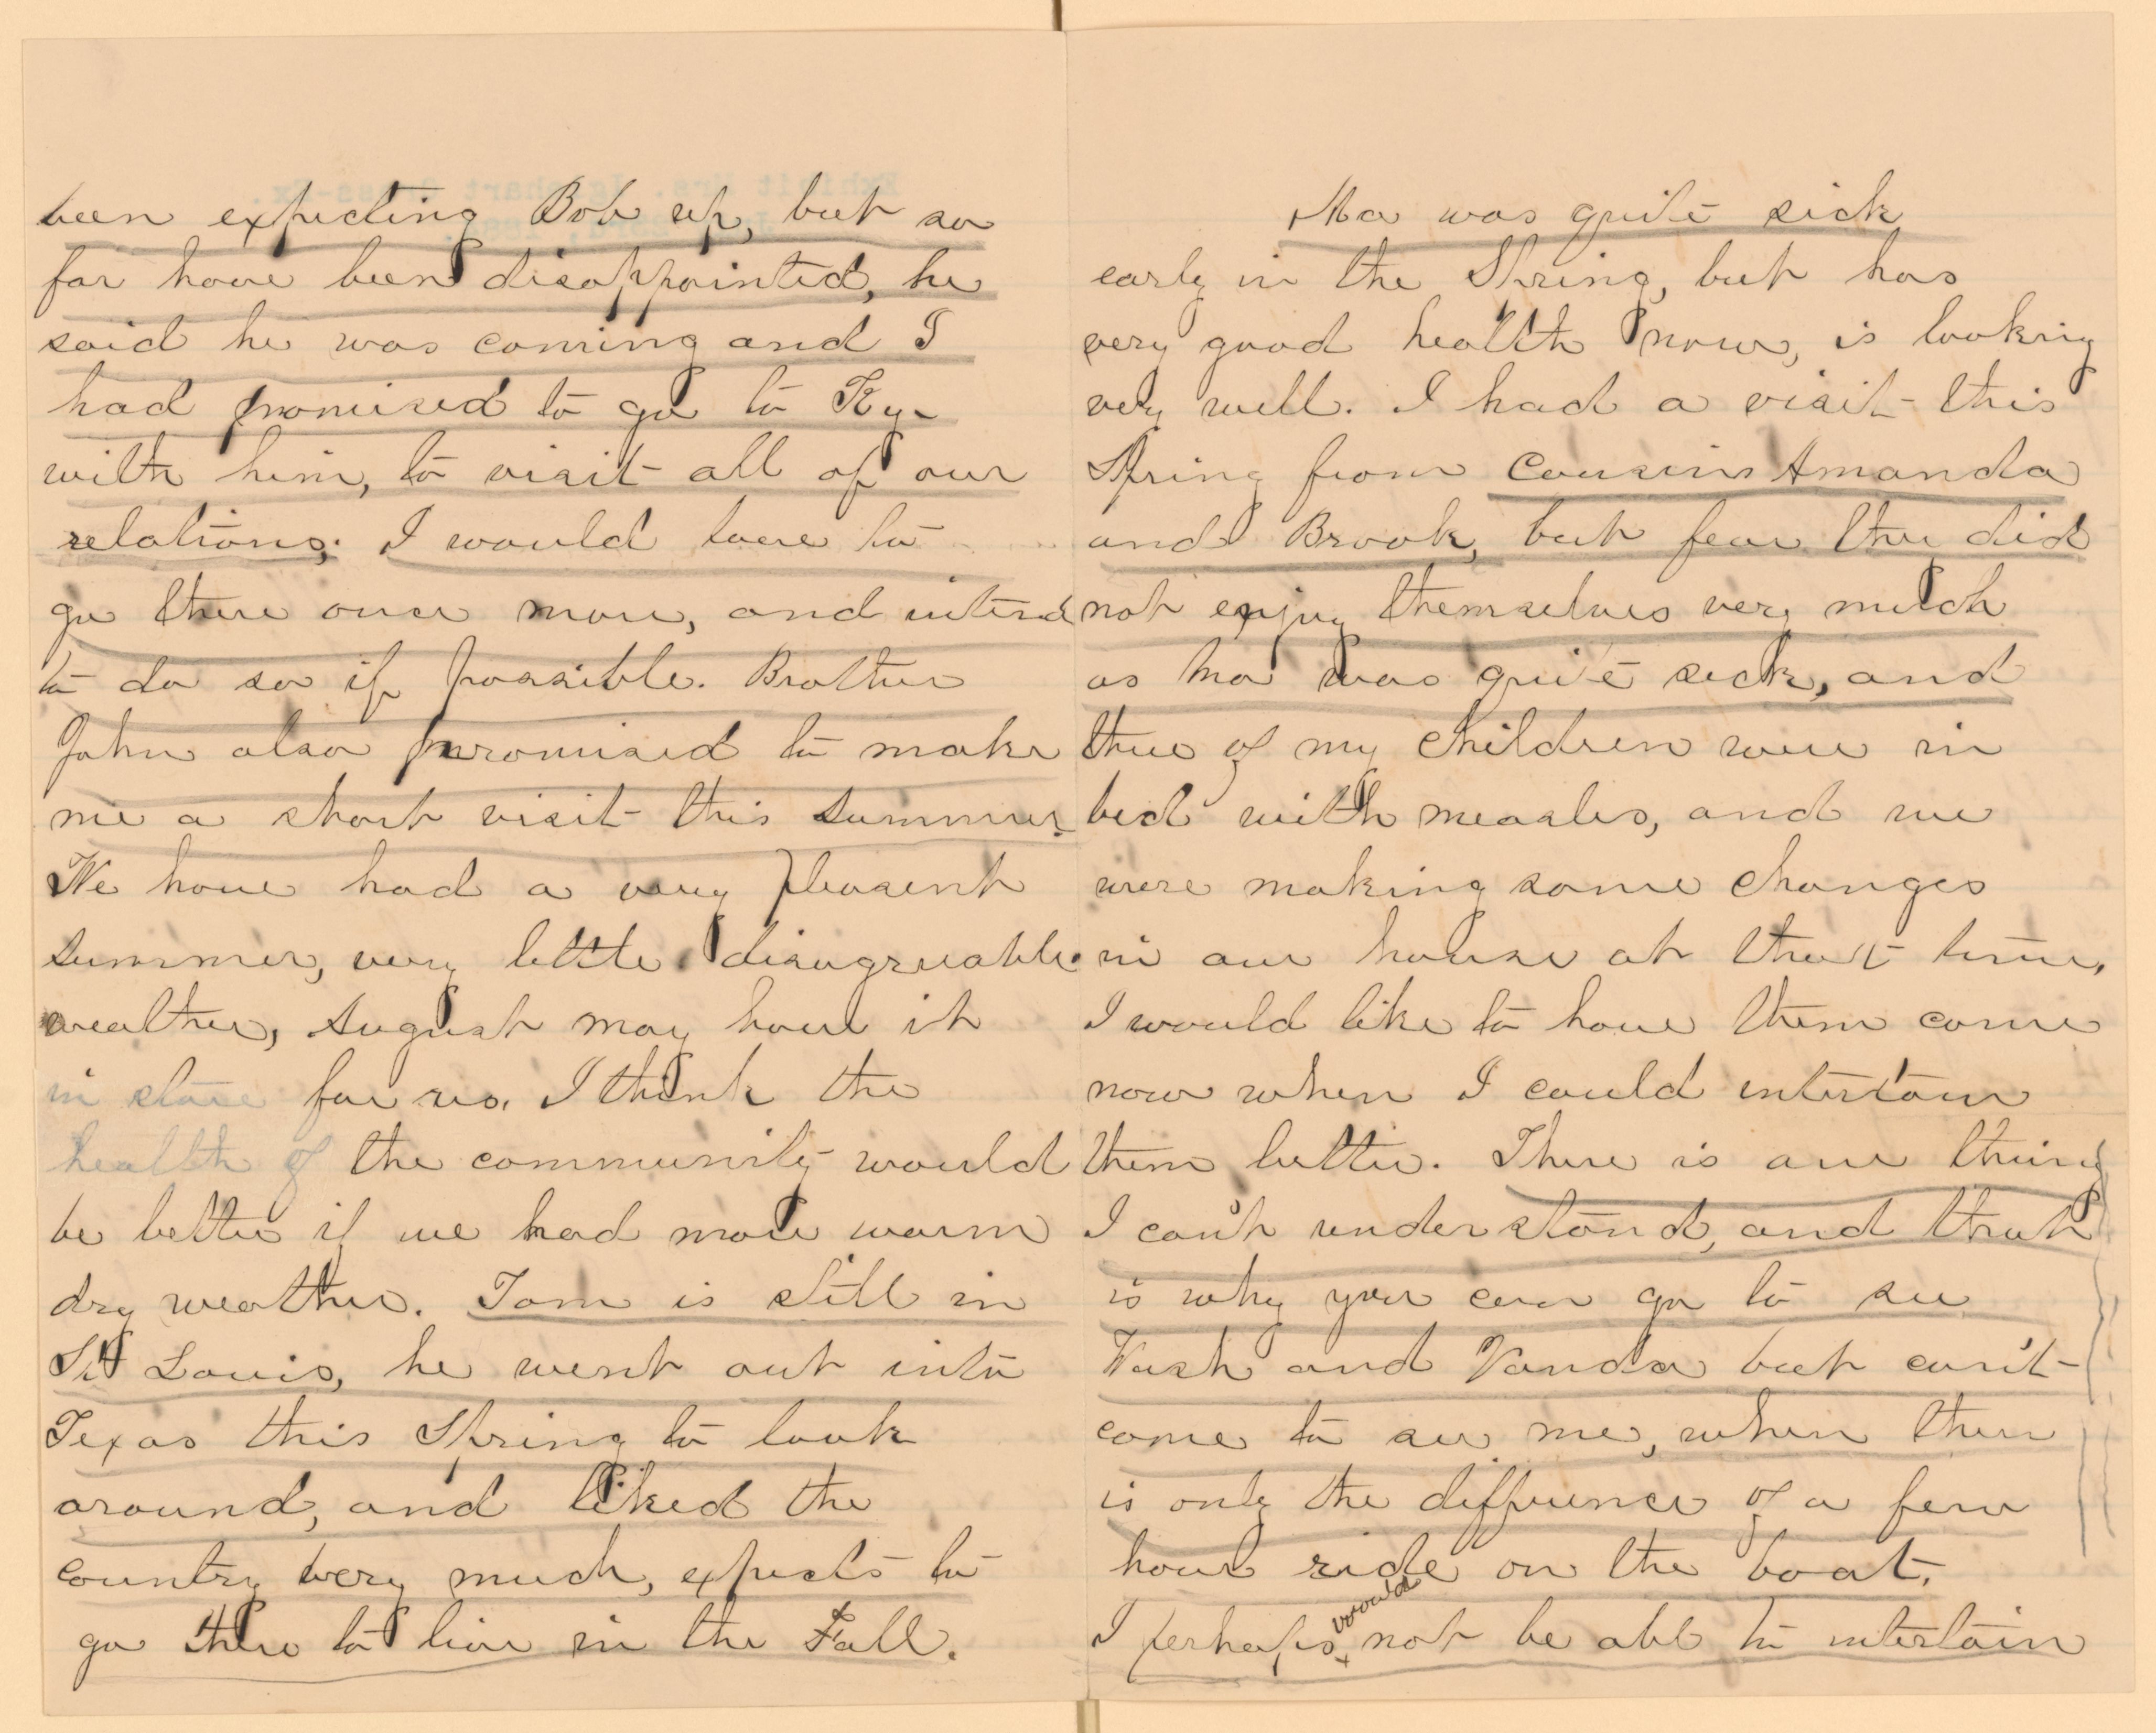 been expecting Bob up, but so
far have been disappointed, he
said he was coming and I
had promised to go to Ky-
with him, to visit all of our
relations; I would love to
go there once more, and intend
to do so if possible. Brother
John also promised to make
me a short visit this summer.
We have had a very pleasent
summer, very little disagreeable
weather, August may have it
in store for us. I think the
health of the community would
be better if we had more warm
dry weather. Tom is still in
St Louis, he went out into
Texas this Spring to look
around, and liked the
country very much, expects to
go there to live in the Fall.
Ma was quite sick
early in the Spring, but has
very good health now, is looking
very well. I had a visit this
Spring from cousins Amanda
and Brook, but fear they did
not enjoy themselves very much
as Ma was quite sick, and
three of my children were in
bed with measles, and we
were making some changes
in our house at that time,
I would like to have them come
now when I could entertain
them better. There is one thing
I can't understand, and that
is why you can go to see
Wash and Vanda but can't
come to see me, when there
is only the difference of a few
hours ride on the boat.
I perhaps would not be able to entertain